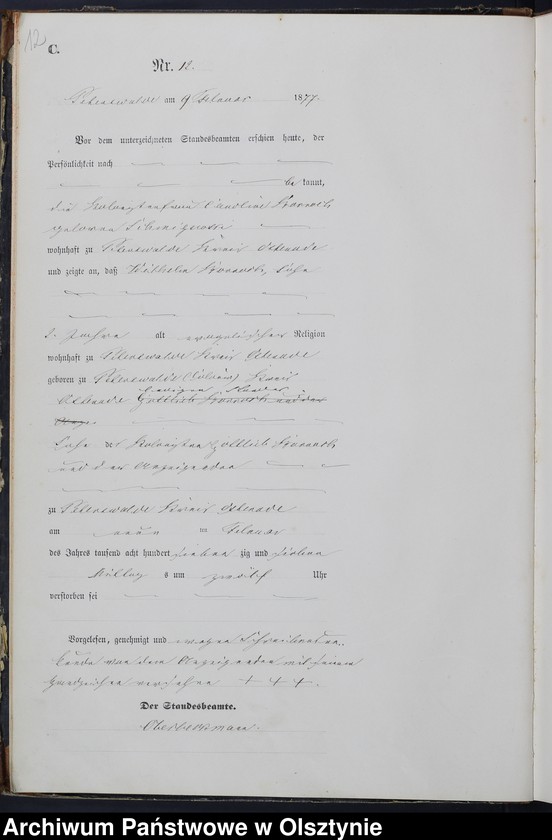 12
C.
Nr. 12.
Peterswalde am 9 Februar 1877.
Vor dem unterzeichneten Standesbeamten erschien heute, der
Persönlichkeit nach
be kannt,
die Caroline
geboren
wohnhaft zu Peterswalde Kreis Osterode
und zeigte an, daß Wilhelm Sohn
Jahre alt evangelischer Religion
wohnhaft zu Peterswalde Kreis Osterode
geboren zu Peterswalde (Colonie) Kreis
Osterode
Sohn der Gottlieb
und der Anzeigenden
zu Peterswalde Kreis Osterode
am neun ten Februar
des Jahres tausend acht hundert sieben zig und sieben
Mittag s um zwölf Uhr
verstorben sei
Vorgelesen, genehmigt und wegen Schreibens un-
kunde von dem Anzeigenden mit seinem
Handzeichen versehen + + +.
Der Standesbeamte.
Archiwum Państwowe w Olsztynie